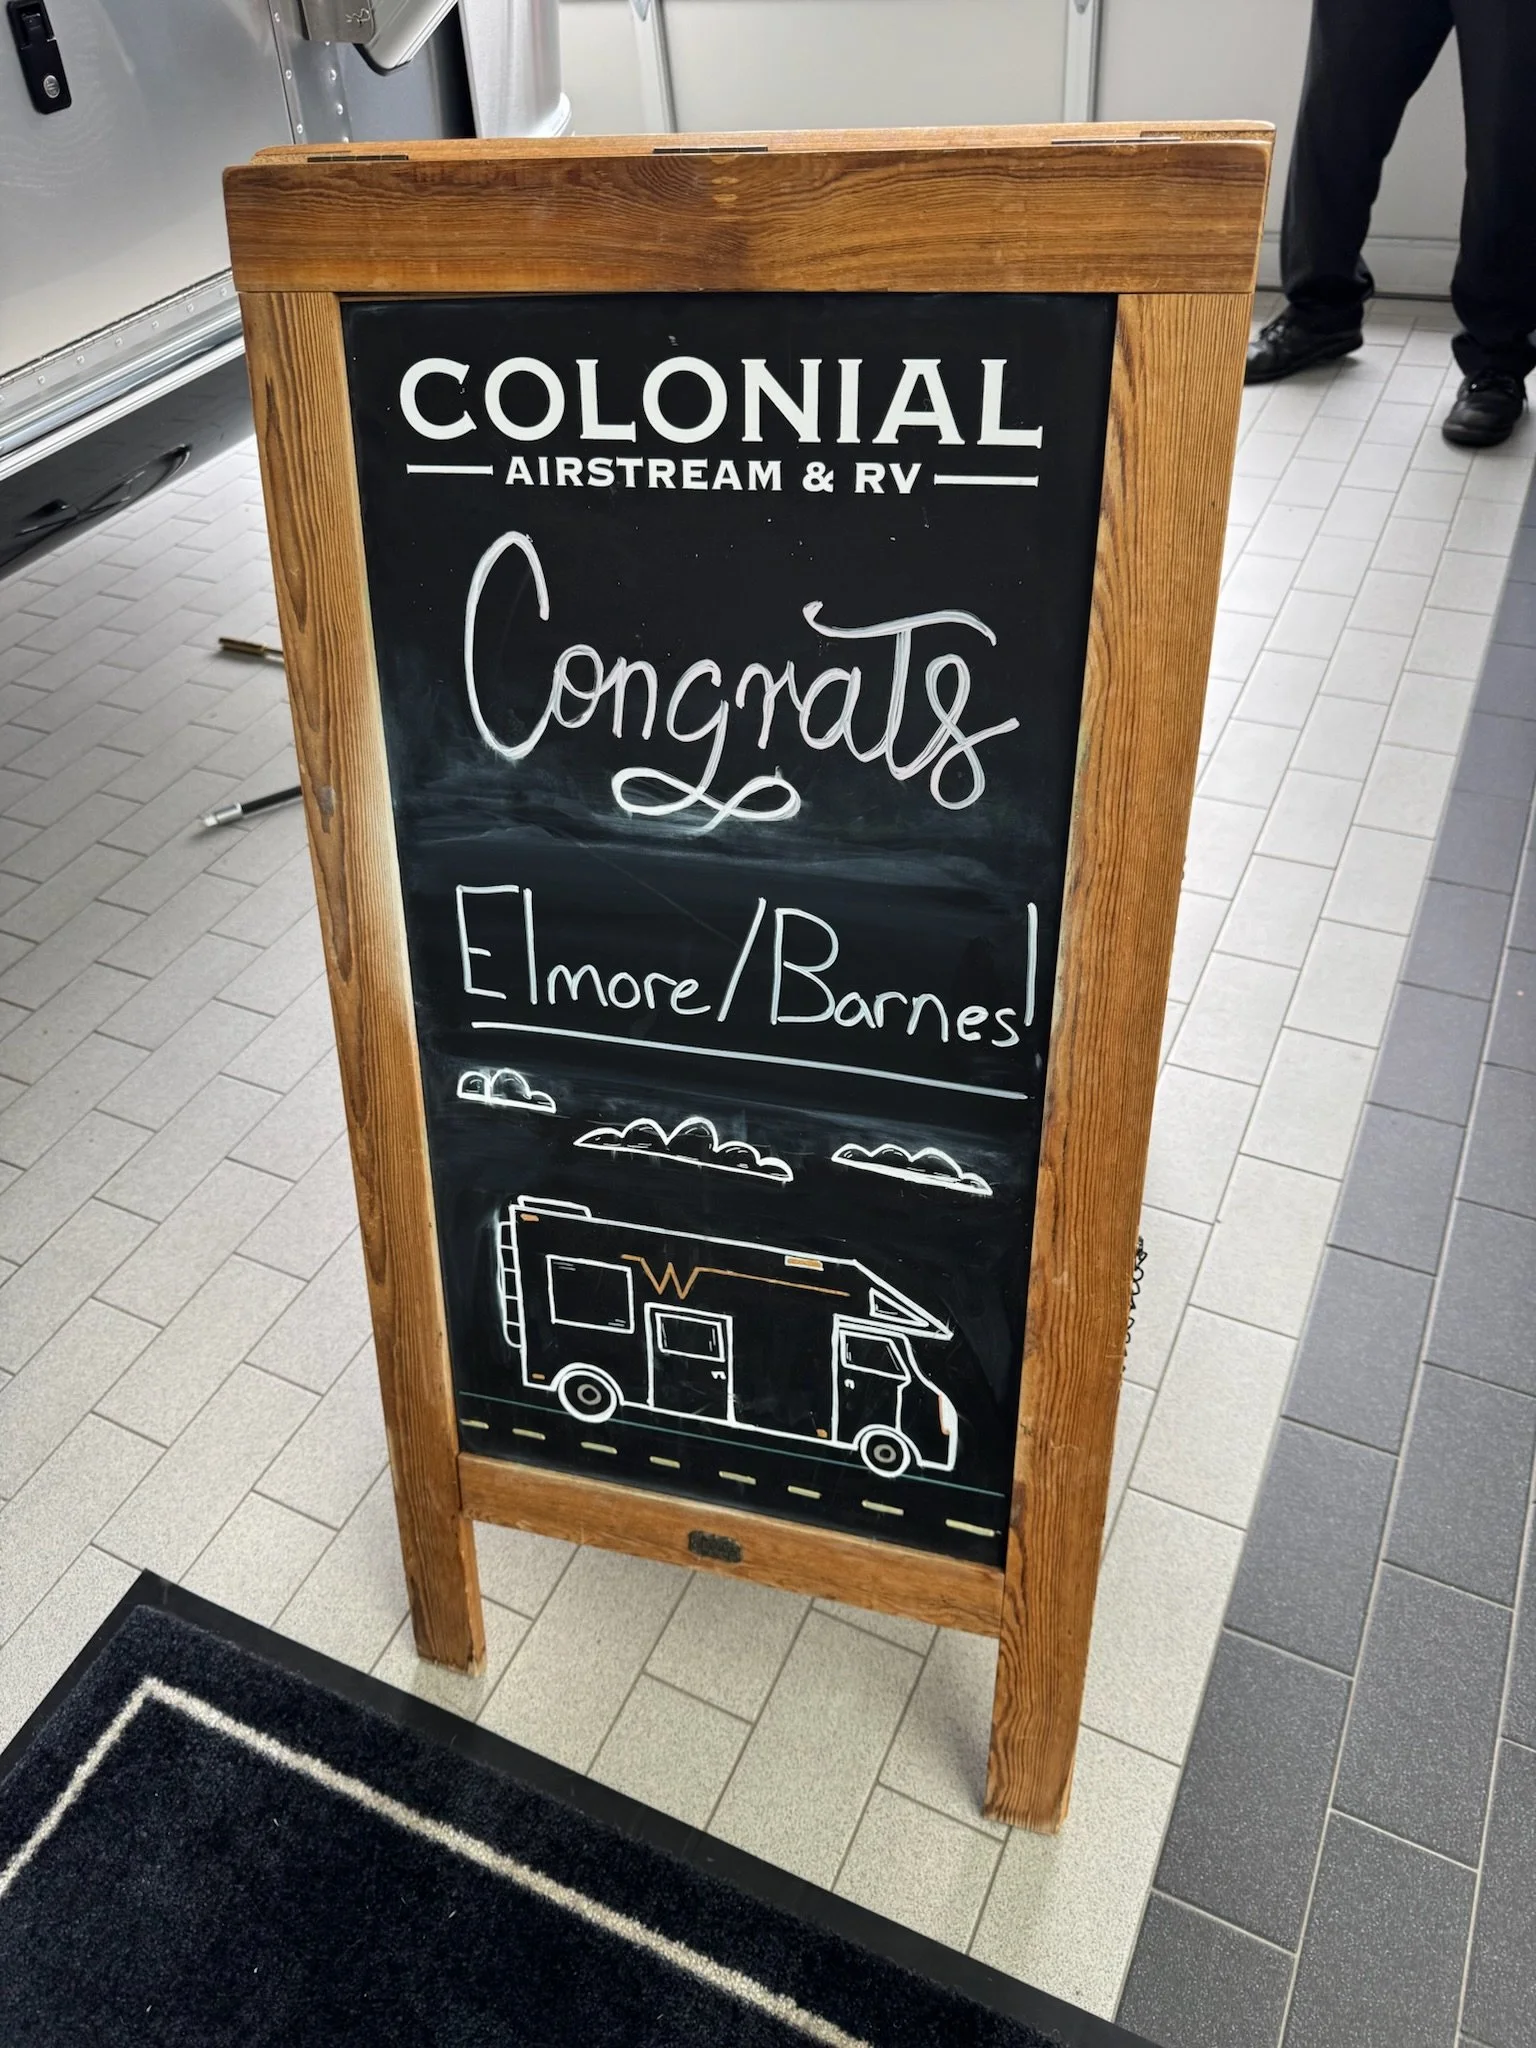 COLONIAL
AIRSTREAM & RV
Congrats
Elmore/Barnes!
W